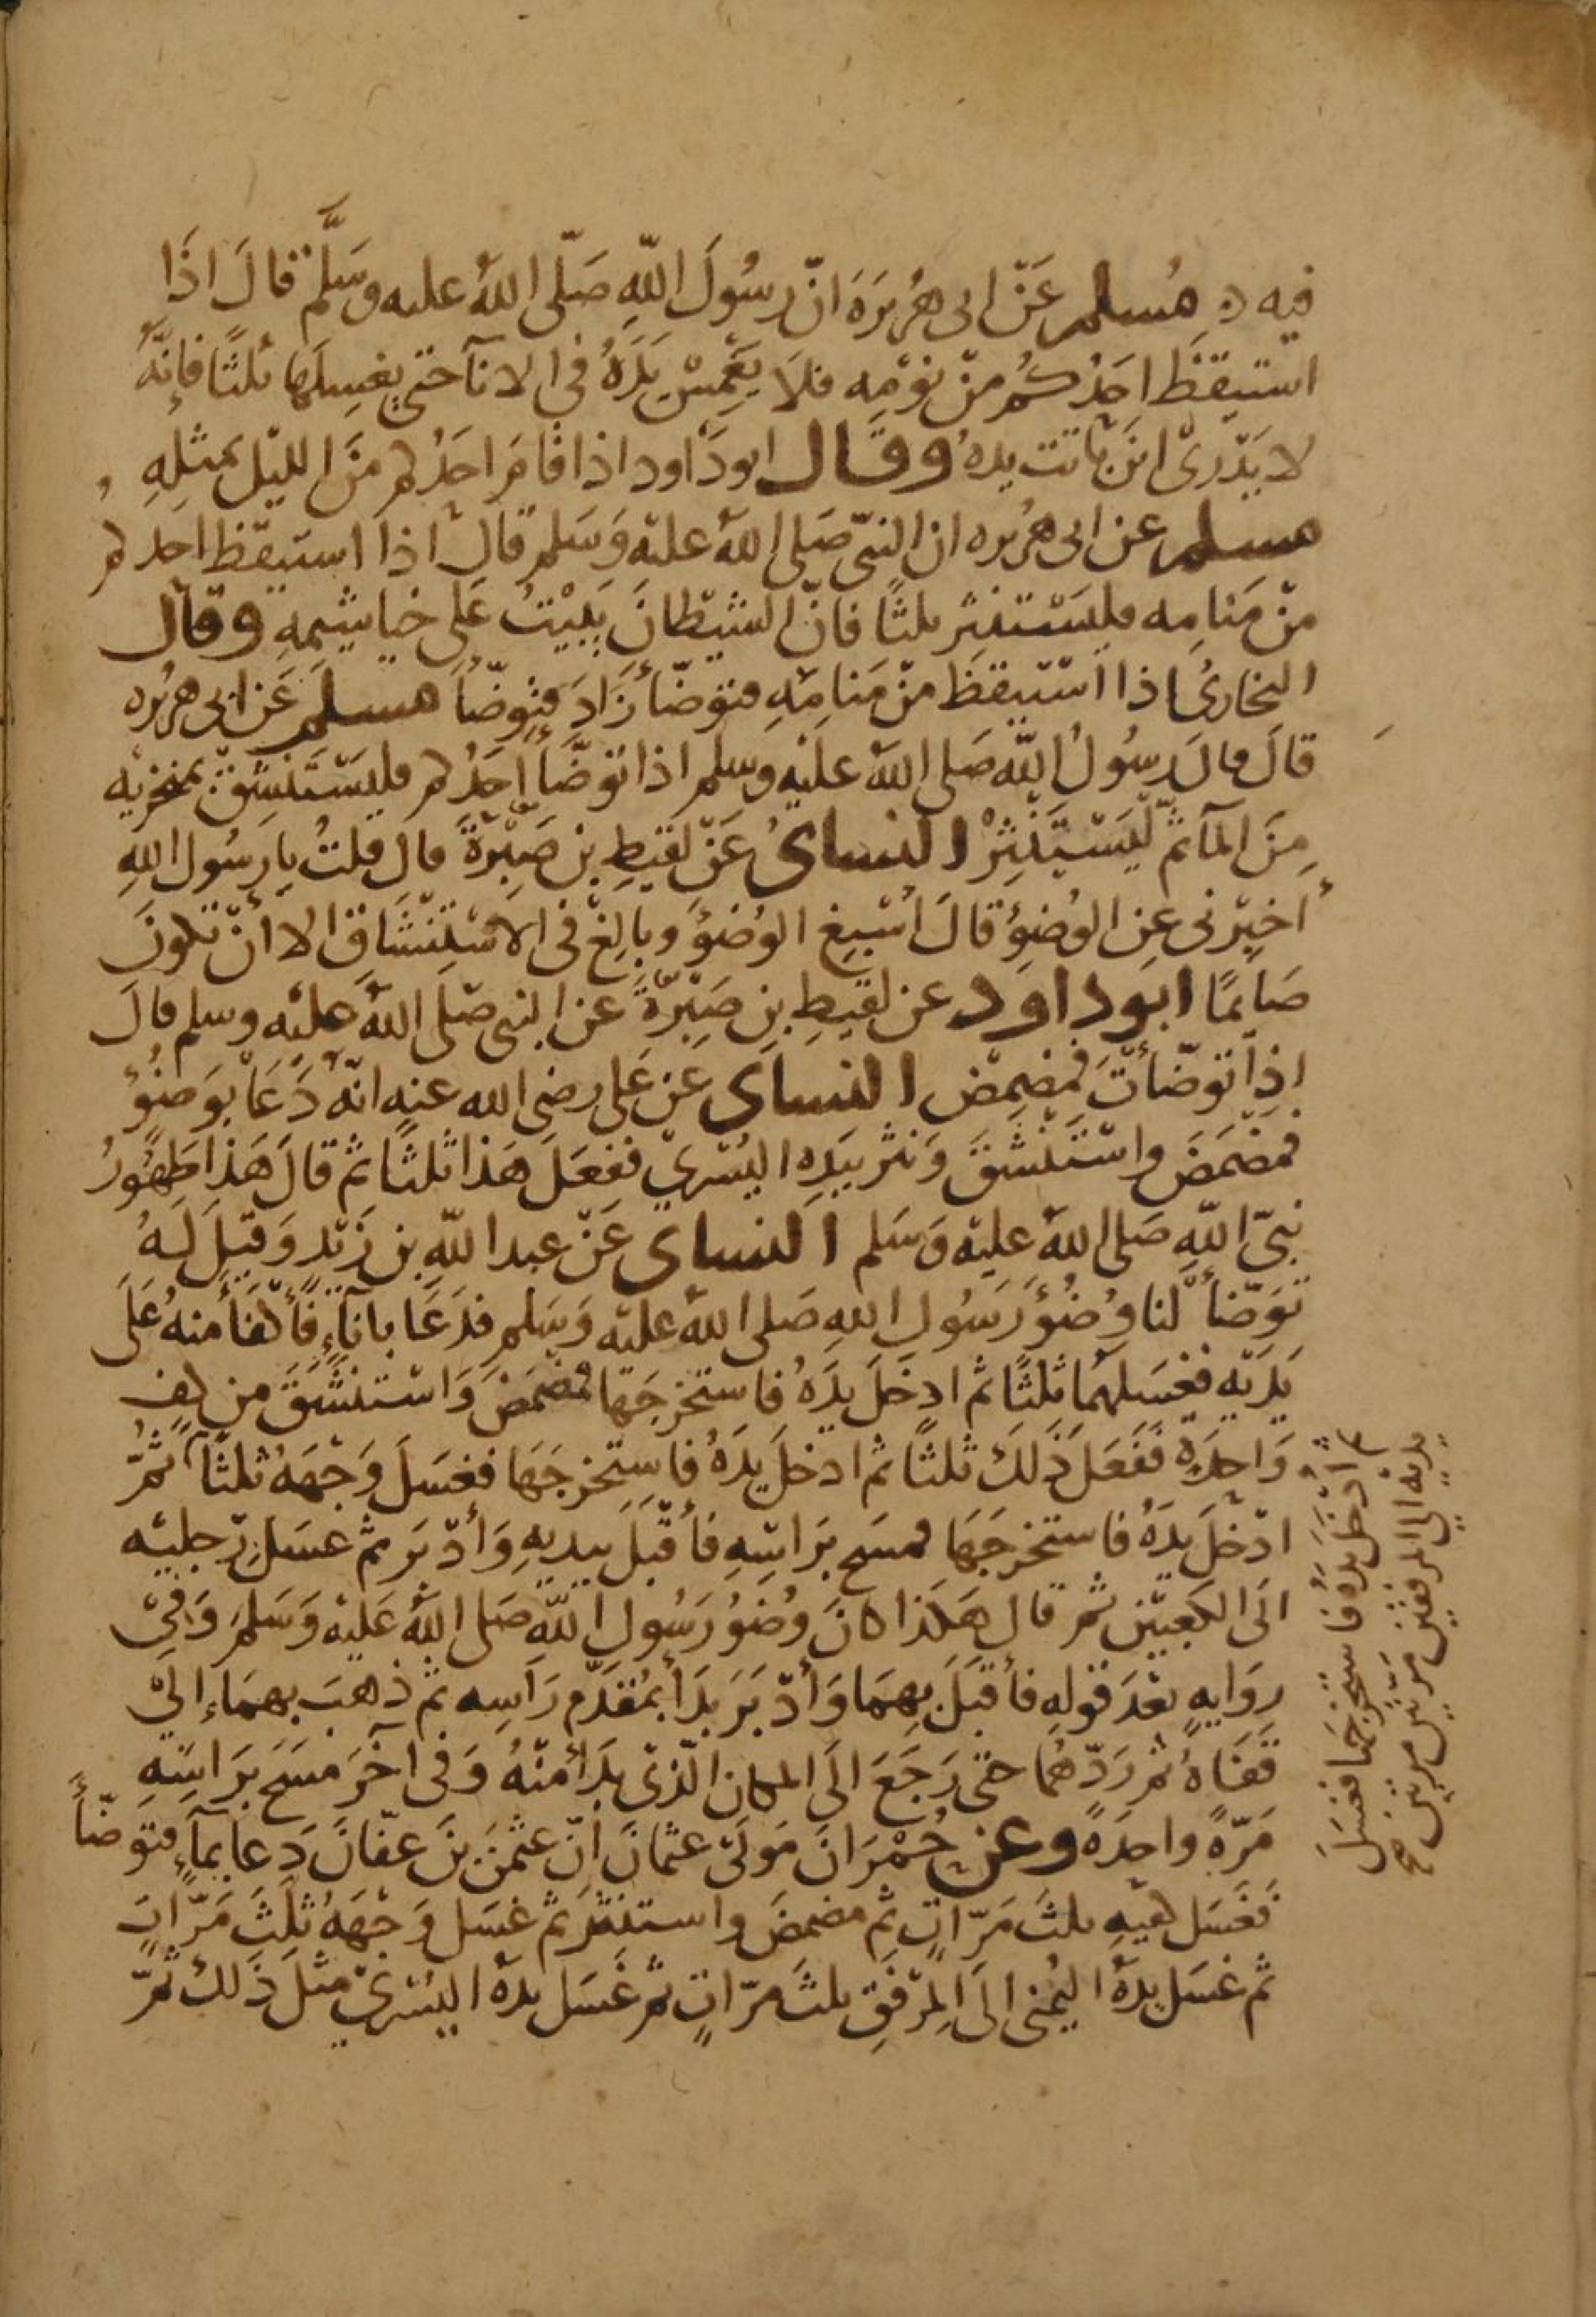 فيه ه مُسلم عَنْ ابى هُرَيرَةَ انّ رسُولَ اللّهِ صَلّى اللهُ عليه وسَلَّم قالَ اذَا
استيقظَ احَدُكُم منْ نوْمِه فلَا يَغْمِسْ يَدَهُ فى الاناۤ حتى يغسِلَها ثلثًا فإنّهُ
لا يَدْرىْ اينَ بَاتت يدهُ وقال ابودَاود اذا قامَ احَدُكم منَ الليْل بمثلِهِ
مسلم عن ابى هُريره ان النبىّ صَلى اللهُ عليْه وَسَلم قال اذا استيقظ احدكم
منْ مَنامِه فليَسْتنثِر ثلثًا فانّ الشيْطانَ يَبيْتُ عَلى خياشيمهِ وقال
البخارىُ اذا اسْتيقظَ منْ مَنامِهِ فتوَضّأ زَادَ فتوضّأ مسلم عَن ابى هريْره
قالَ قال رسُولُ اللّه صَلى اللهُ عليْه وسلم اذا توَضَّأ احَدُكم فليَسْتَنشِقْ بمنخِرَيْه
مِنَ المآ ثمّ ليَسْتَنْثِرْ النساىُ عَنْ لقيْطِ بْن صَبِرَةَ قال قلتُ يا رسُول اللهِ
أخبِرْنى عنِ الوُضؤُ قالَ اسْبِغِ الوُضؤُ وبالِغْ فى الاسْتِنشَاق الا انْ تكونَ
صَايمًا ابوداود عن لقيطِ بنِ صَبِرَةَ عن النبى صَلّى اللهُ عليْه وسلم قالَ
اذا توَضّأتَ فمَضمِضْ النساى عَن عَلى رضى الله عنه انّهُ دَعَا بوَضؤُ
فمَضمَضَ واسْتَنشقَ وَنثر بيَدِه اليُسْرىْ ففعَلَ هَذا ثلثًا ثم قالَ هَذا طَهُورُ
نبىّ اللّهِ صَلى اللهُ عليْه وَسَلم النساى عَنْ عبد اللّهِ بن زَيْد وَقيلَ لهُ
توَضّأ لنا وُضؤُ رَسُول اللهِ صَلى اللهُ عليْه وَسَلم فدَعَا باناۤءٍ فأكفأ منهُ عَلى
يَدَيْه فغسَلهُما ثلثًا ثم ادخَلَ يدَهُ فاستخرجَها فمَضمَضَ وَاسْتنشقَ من كف
وَاحِدَةٍ ففَعَلَ ذَلكَ ثلثًا ثم ادخَلَ يدَهُ فاستخرجَهَا فغسَلَ وَجْهَهُ ثلثًا ثمّ
ادْخلَ يدَهُ فاستخرجَهَا فمسَح برَاسِهِ فأقْبَلَ بيديهِ وَأدْبَر ثم غسَل رجليْه
الَى الكعبيْن ثم قال هَكذا كانَ وُضؤُ رَسُول اللّه صَلى اللهُ عَليْه وَسَلمَ وَفىْ
روَايهٍ بعْدَ قولِهِ فأقبَلَ بهِمَا وَأدْبَرَ بدَأ بمُقدَّم رَاسِه ثم ذهَبَ بهمَا إلىْ
قفَاهُ ثم رَدّهُما حتى رَجَعَ الَى المكان الّذىْ بدَأ منْهُ وَفى آخرَ مسَحَ برَاسِهِ
مَرّةً واحدَةً وعن حُمْرَانَ مَولَى عثمانَ انّ عثمٰنَ بنَ عفّانَ دَعا بمآءٍ فتوَضّأ
فغسَل كفيْهِ ثلثَ مَرّاتٍ ثم مضمضَ واستنثرَ ثم غسَل وَجْهَهُ ثلثَ مَرّاتٍ
ثم غسَل يدَهُ اليُمْنى الَى المِرْفقِ ثلثَ مرّاتٍ ثم غسَل يدهُ اليُسْرىْ مثلَ ذَلكَ ثمّ
ثم ادْخَلَ يدَهُ فاستخرجهَا فغسَلَ
يديْه الى المرفقيْن مرّتيْن مرتيْن صح